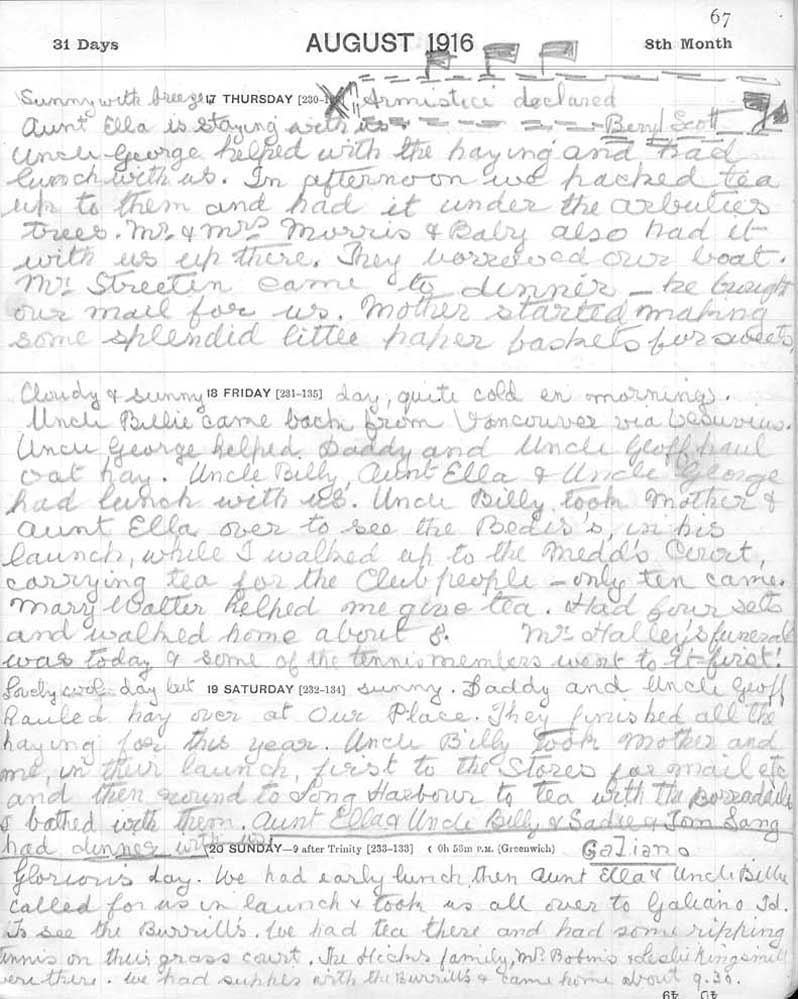 67
31 Days AUGUST 1916 8th Month
Sunny with breeze 17 THURSDAY [230- Armistice declared
Aunt Ella is staying with us. Beryl Scott
Uncle George helped with the haying and had
lunch with us. In afternoon we packed tea
up to them and had it under the arbuties
trees. Mr. & Mrs Morris & Baby also had it
with us up there. They borrowed our boat.
Mr. Streeten came to dinner – he brought
our mail for us. Mother started making
some splendid little paper baskets for sweets,
Cloudy & sunny 18 FRIDAY [231–135] day, quite cold en mornings.
Uncle Billie came back from Vancouver via Vesuvius.
Uncle George helped Daddy and Uncle Geoff haul
oat hay. Uncle Billy, Aunt Ella & Uncle George
had lunch with us. Uncle Billy took Mother &
Aunt Ella over to see the Bedis's, in his
launch, while I walked up to the Medd's Court,
carrying tea for the Club people – only ten came.
Mary Walter helped me give tea. Had four sets
and walked home about 8. Mrs Halley's funeral
was today & some of the tennis members went to it first!
Lovely cool day but 19 SATURDAY [232–134] sunny. Daddy and Uncle Geoff
hauled hay over at Our Place. They finished all the
haying for this year. Uncle Billy took Mother and
me, in their launch, first to the Stores for mail etc
and then round to Long Harbour to tea with the Borradaile
& bathed with them. Aunt Ella & Uncle Billy & Sadie & Tom Lang
had dinner with us!
20 SUNDAY—9 after Trinity [233–133] ☾ 0h 53m P.M. (Greenwich) Galiano
Glorious day. We had early lunch then Aunt Ella & Uncle Billy
called for us in launch & took us all over to Galiano Id.
To see the Burrill's. We had tea there and had some ripping
tennis on their grass court. The Hicks family, Mr. Bobins & Leslie Kingsmill
were there. We had supper with the Burrill's & came home about 9.30.